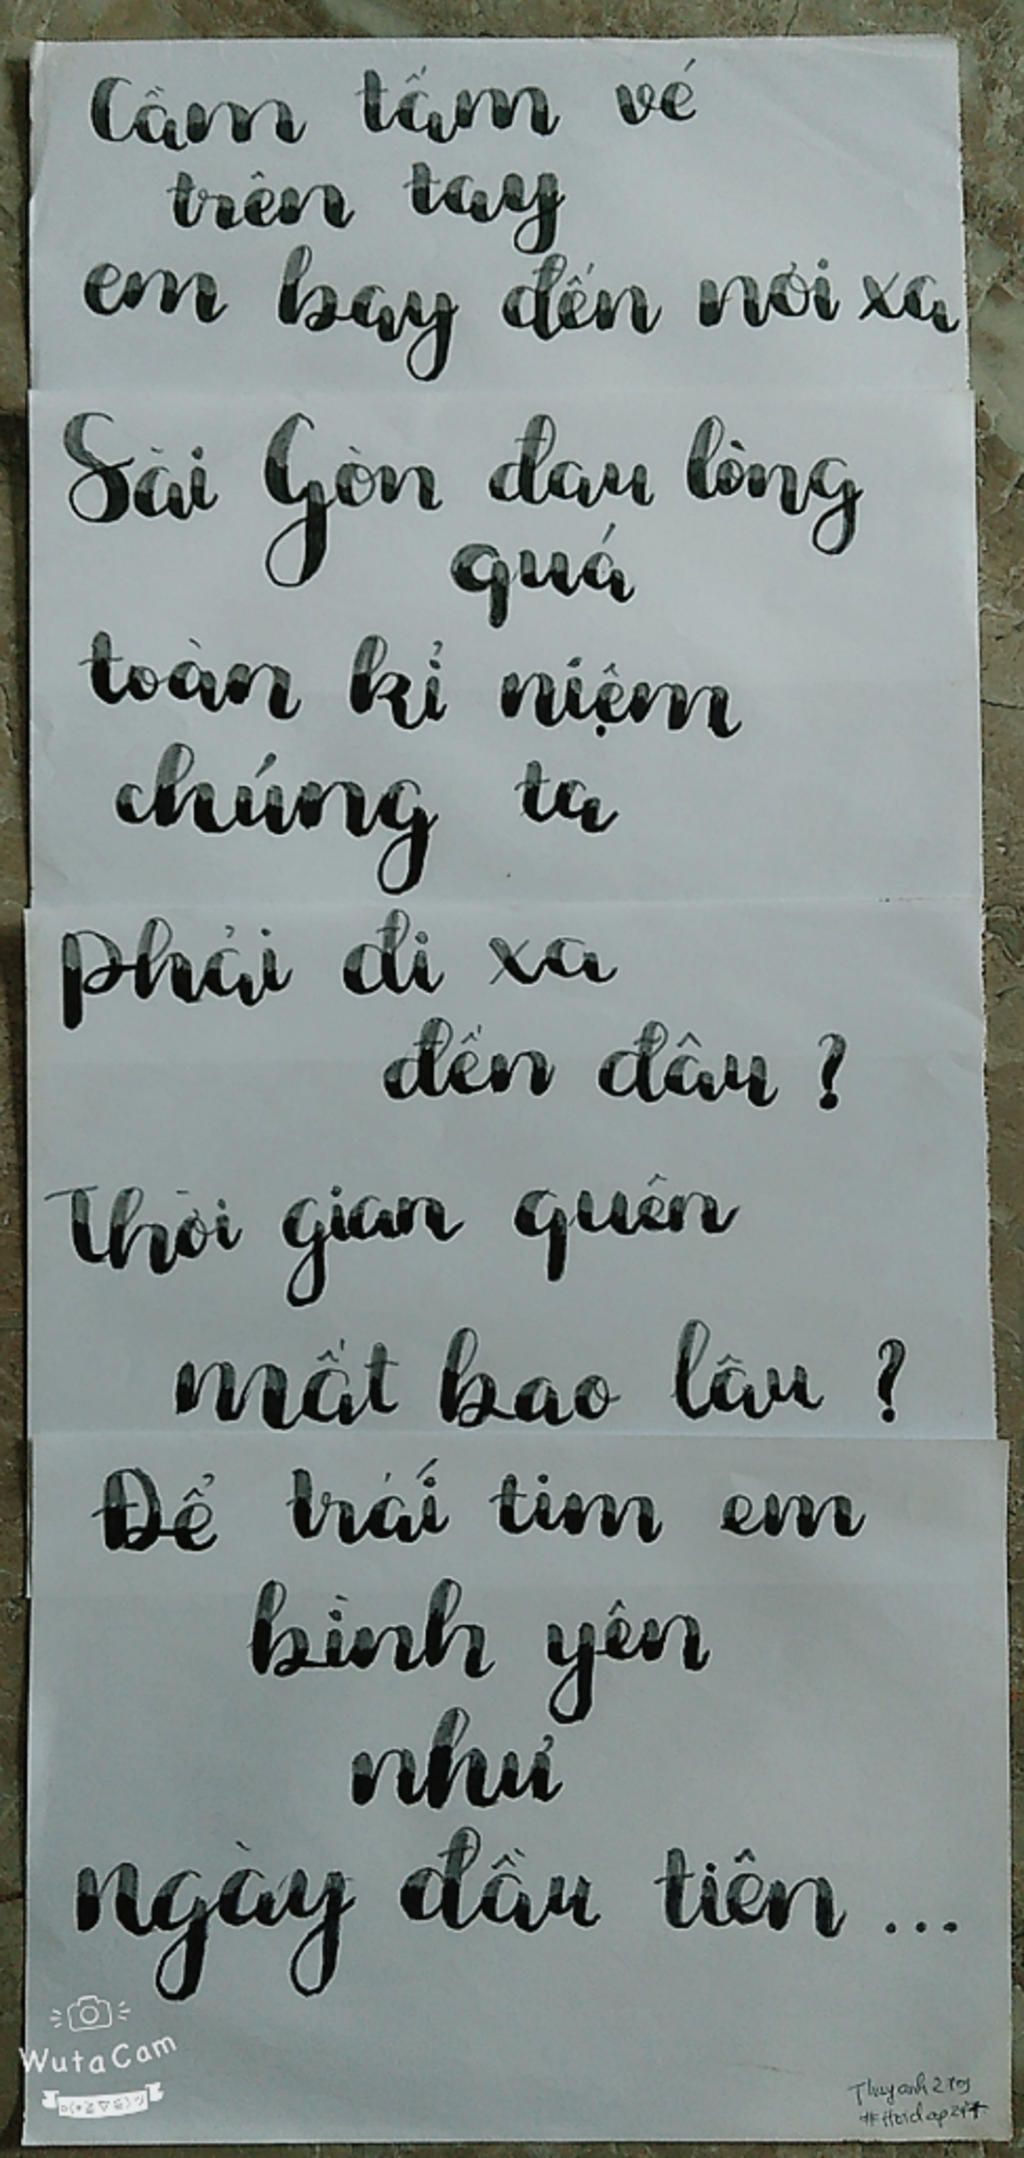 Cầm tấm vé
trên tay
em bay đến nơi xa
Sài Gòn đau lòng
quá
toàn kỉ niệm
chúng ta
phải đi xa
đến đâu ?
Thời gian quên
mất bao lâu ?
Để trái tim em
bình yên
như
ngày đầu tiên ...
WutaCam